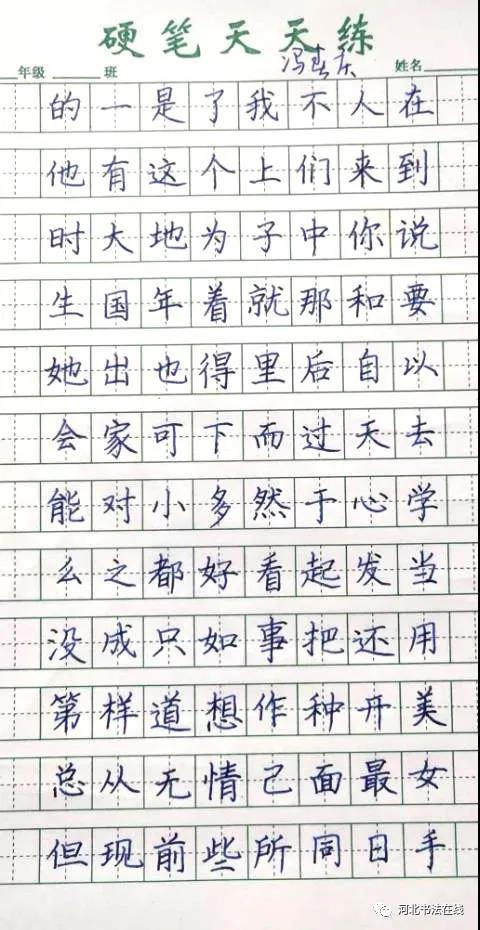 硬笔天天练
冯春庆
年级 班 姓名
的一是了我不人在
他有这个上们来到
时大地为子中你说
生国年着就那和要
她出也得里后自以
会家可下而过天去
能对小多然于心学
么之都好看起发当
没成只如事把还用
第样道想作种开美
总从无情己面最女
但现前些所同日手
河北书法在线